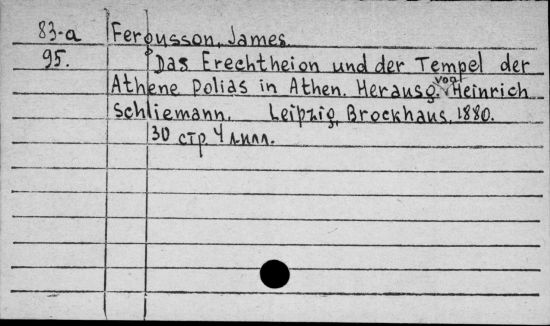 83-a Fergusson, James.
95. Das Erechtheion und der Tempel der
Athene Polias in Athen. Herausg. von Heinrich
Schliemann. Leipzig, Brockhaus, 1880.
30 стр. 4 илл.